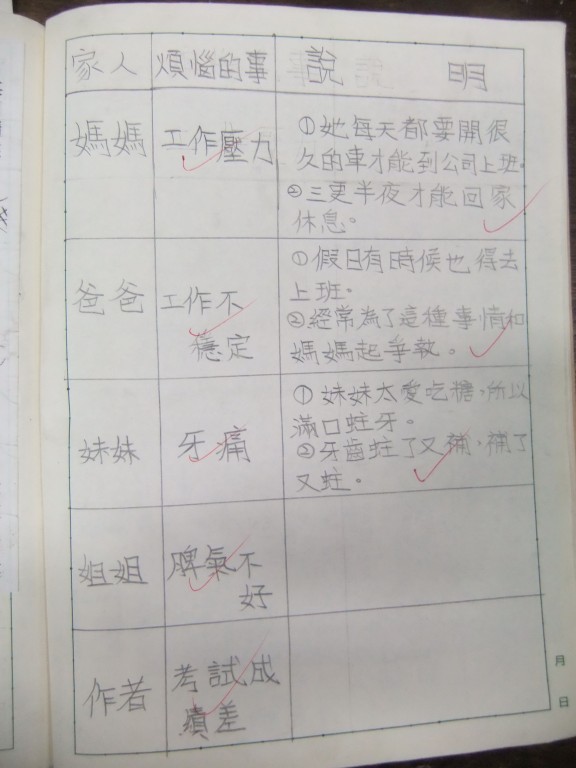 家人 煩惱的事 說 明
媽媽 工作壓力
①她每天都要開很
久的車才能到公司上班。
②三更半夜才能回家
休息。
爸爸 工作不
穩定
①假日有時候也得去
上班。
②經常為了這種事情和
媽媽起爭執。
妹妹 牙痛
①妹妹太愛吃糖,所以
滿口蛀牙。
②牙齒蛀了又補,補了
又蛀。
姐姐 脾氣不
好
作者 考試成
績差
月
日